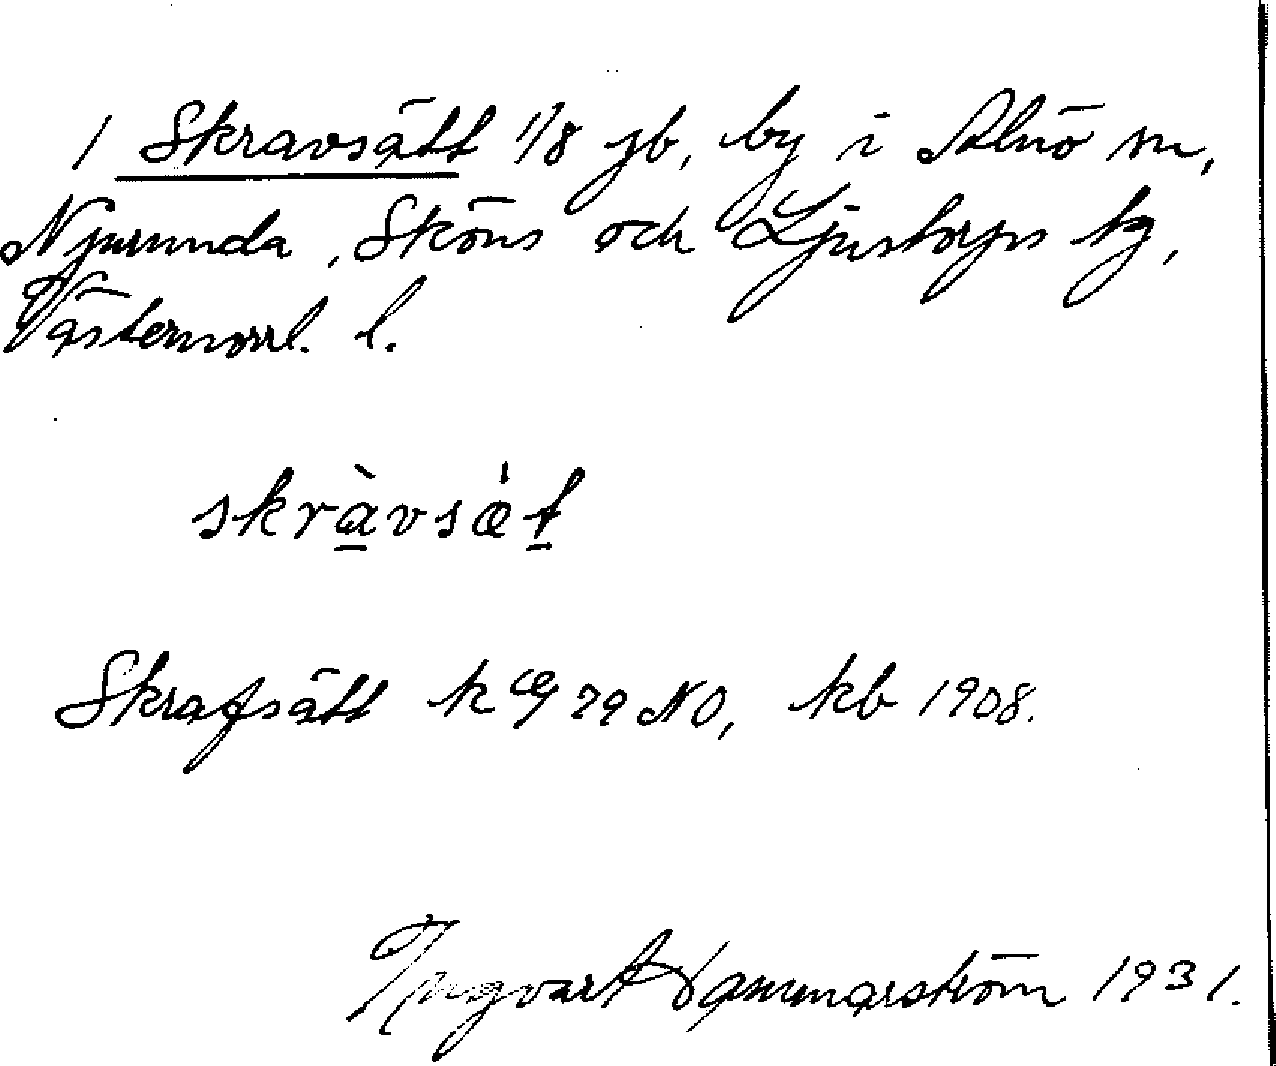 1 Skravsätt 1/8 jb, by i Alnö sn,
Njurunda, Sköns och Ljustorps tg,
Västernorrl. l.
skrà̱vsæ̍ṯ
Skrafsätt k 79 NO, kb 1908.
Yngvart 1931.